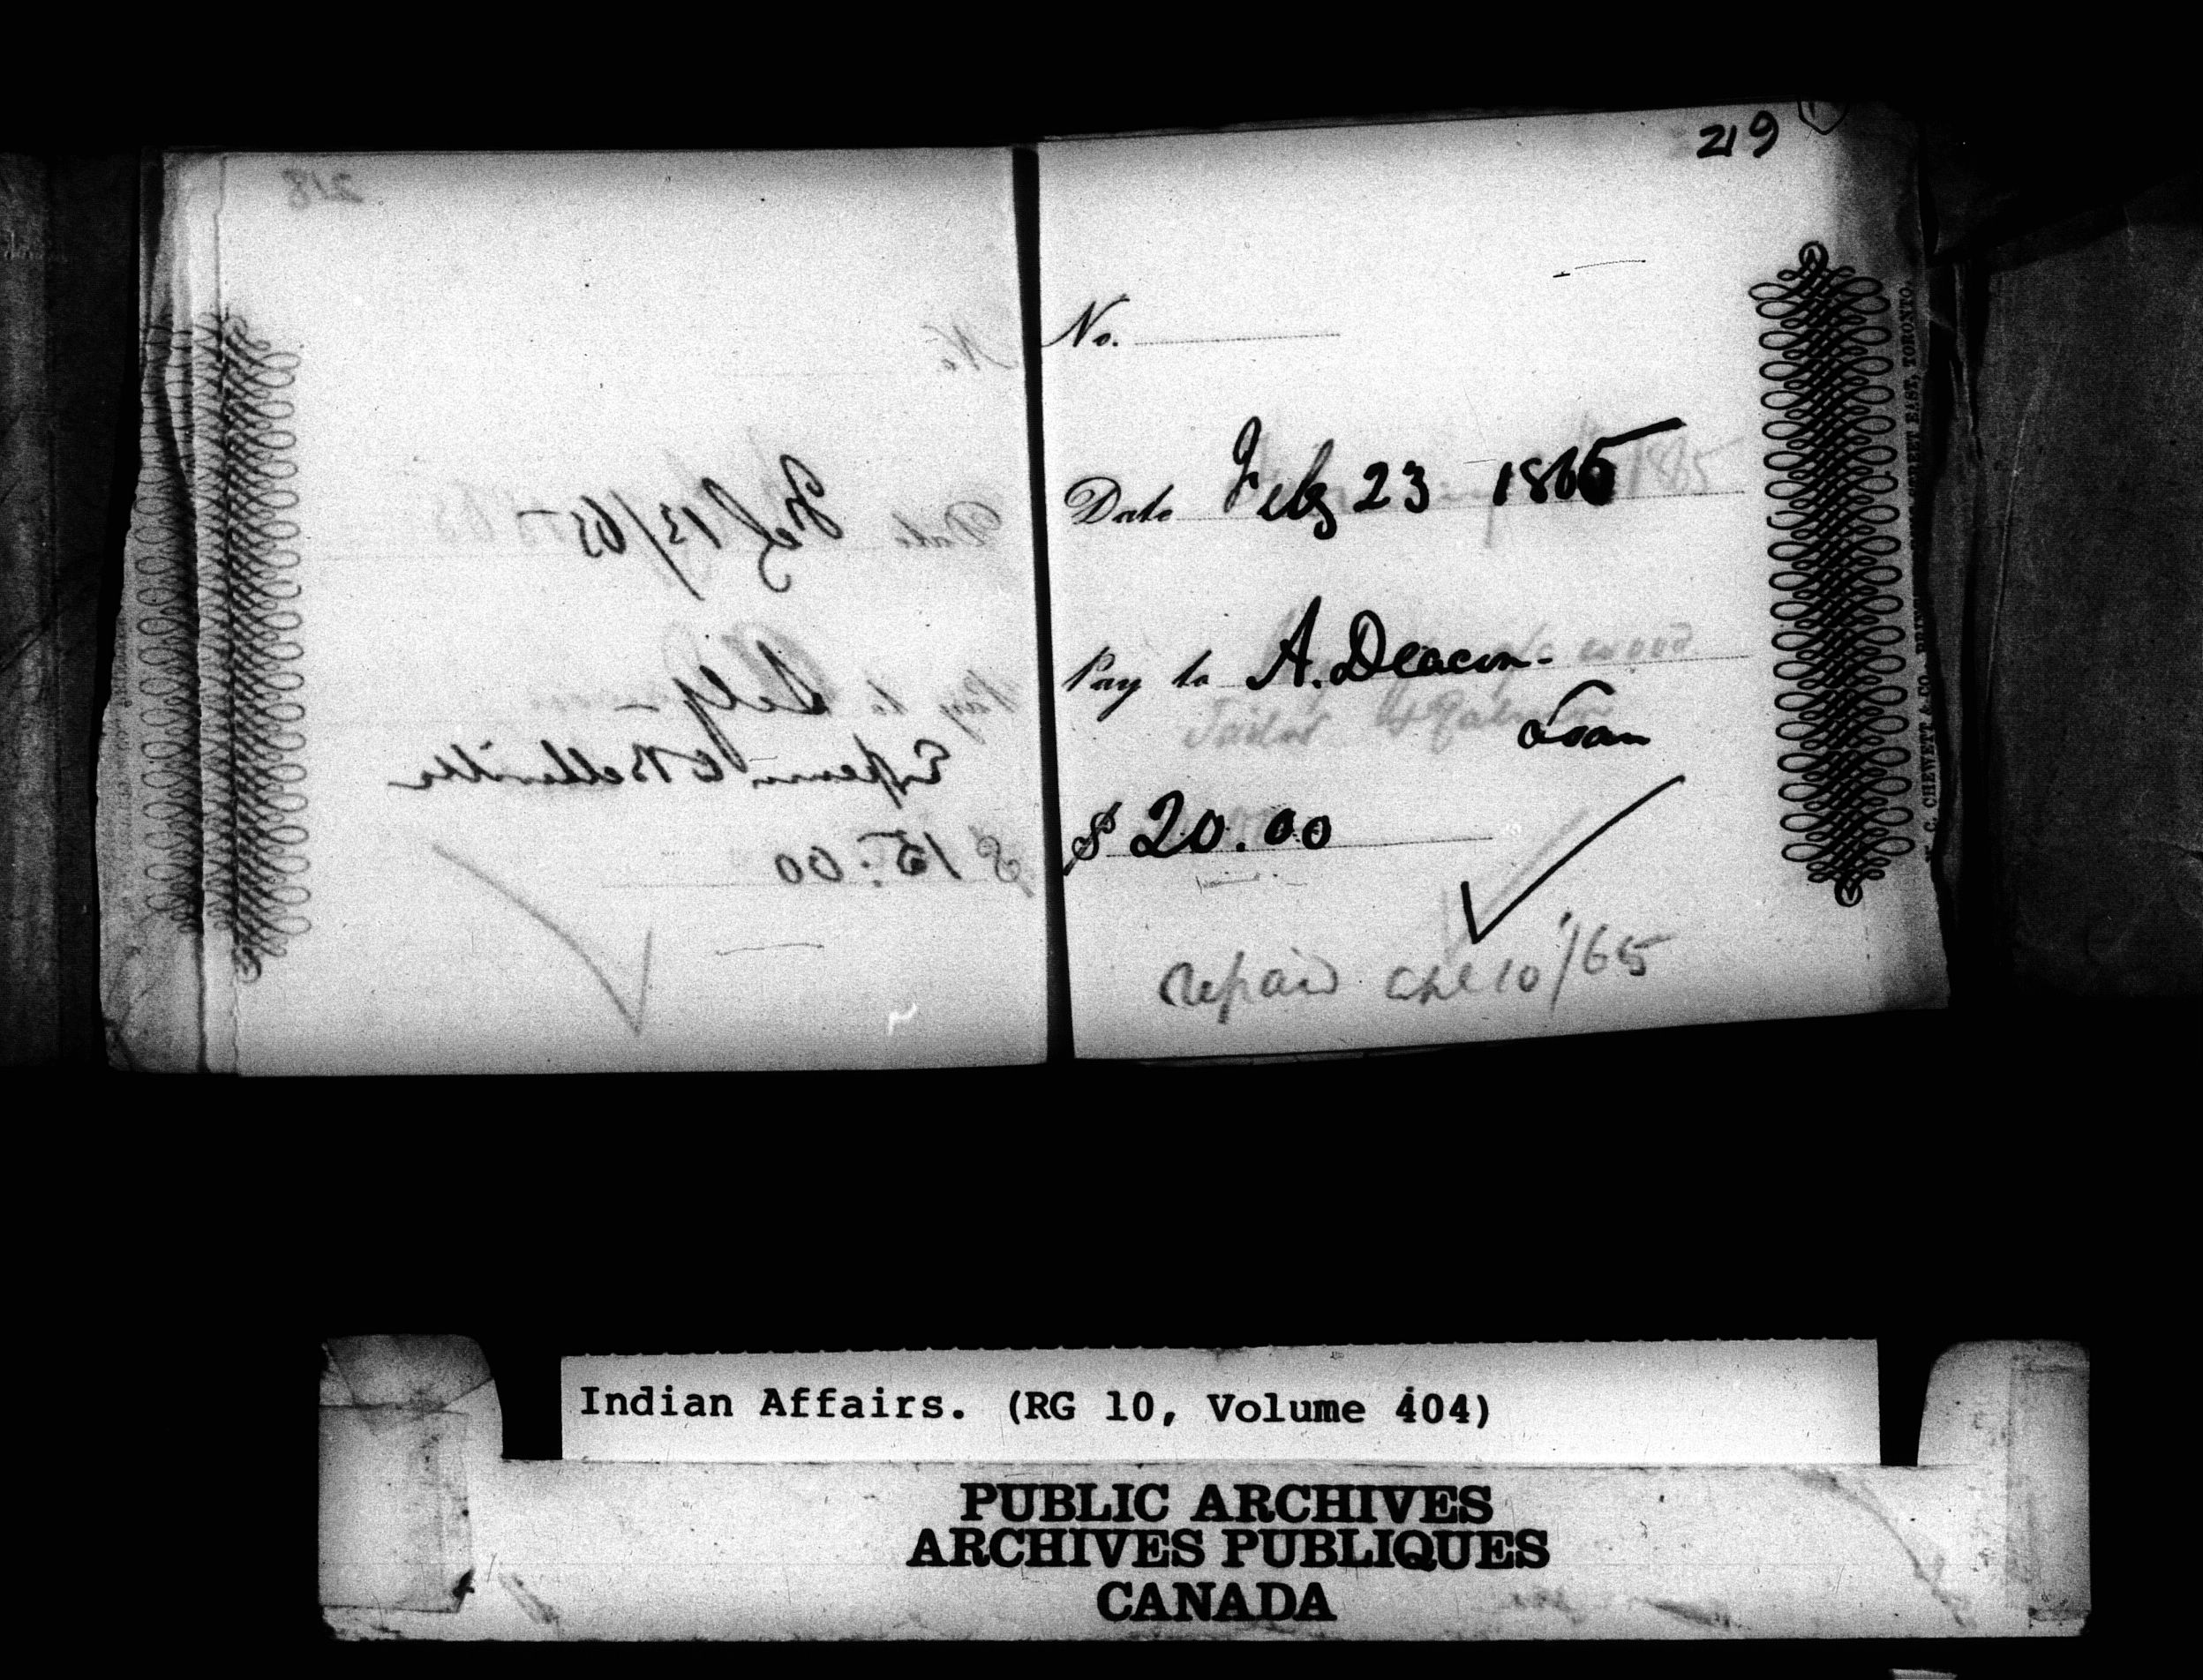 218
No.
Date Feb 13/65
Pay to Self
Expenses to Belleville
$ 15.00
219
No.
Date Feby 23 1865
Pay to A. Deacon -
Loan
$ 20.00
repaid 10/65
TORONTO.
Indian Affairs. (RG 10, Volume 404)
PUBLIC ARCHIVES
ARCHIVES PUBLIQUES
CANADA